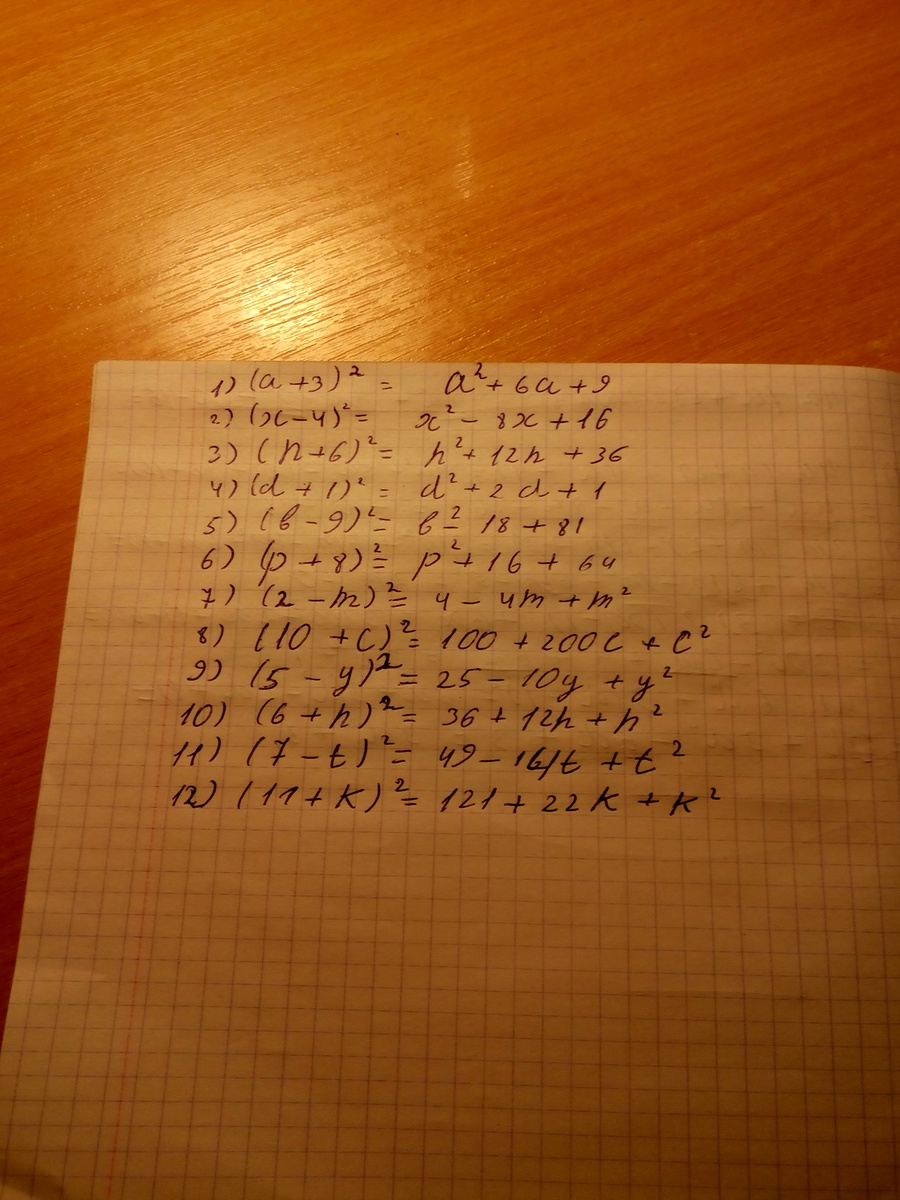 1) (a+3)² = a² + 6a + 9
2) (x-4)² = x² - 8x + 16
3) (n+6)² = n² + 12n + 36
4) (d + 1)² = d² + 2d + 1
5) (в - 9)² = в² - 18 + 81
6) (p + 8)² = p² + 16 + 64
7) (2 - m)² = 4 - 4m + m²
8) (10 + c)² = 100 + 200c + c²
9) (5 - y)² = 25 - 10y + y²
10) (6 + n)² = 36 + 12n + n²
11) (7 - t)² = 49 - 161t + t²
12) (11 + k)² = 121 + 22k + k²